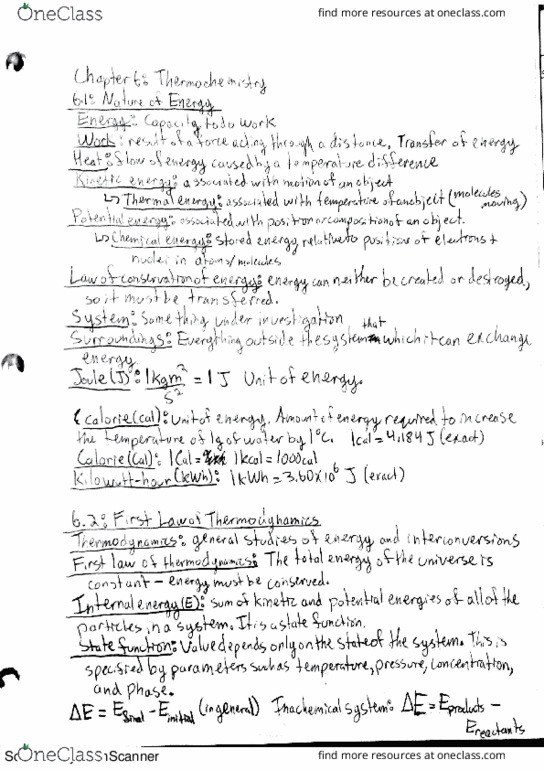 OneClass
find more resources at oneclass.com
Chapter 6: Thermochemistry
6.1: Nature of Energy
Energy: Capacity to do work
Work: result of a force acting through a distance. Transfer of energy
Heat: flow of energy caused by a temperature difference
Kinetic energy: associated with motion of an object
↳ Thermal energy: associated with temperature of an object (molecules moving)
Potential energy: associated with position or composition of an object.
↳ Chemical energy: stored energy relative to position of electrons +
nuclei in atoms/molecules
Law of conservation of energy: energy can neither be created or destroyed,
so it must be transferred.
System: Something under investigation
Surroundings: Everything outside the system that which it can exchange
energy
Joule (J): 1 kg m²/s² = 1 J Unit of energy.
calorie (cal): Unit of energy. Amount of energy required to increase
the temperature of 1g of water by 1°C. 1 cal = 4.184 J (exact)
Calorie (Cal): 1 Cal = 1 kcal = 1000 cal
Kilowatt-hour (kWh): 1 kWh = 3.60 x 10⁶ J (exact)
6.2: First Law of Thermodynamics
Thermodynamics: general studies of energy and interconversions
First law of thermodynamics: The total energy of the universe is
constant - energy must be conserved.
Internal energy (E): sum of kinetic and potential energies of all of the
particles in a system. It is a state function.
State function: Value depends only on the state of the system. This is
specified by parameters such as temperature, pressure, concentration,
and phase.
ΔE = Efinal - Einitial (in general) In a chemical system: ΔE = Eproducts -
Ereactants
OneClass
Scanner
find more resources at oneclass.com